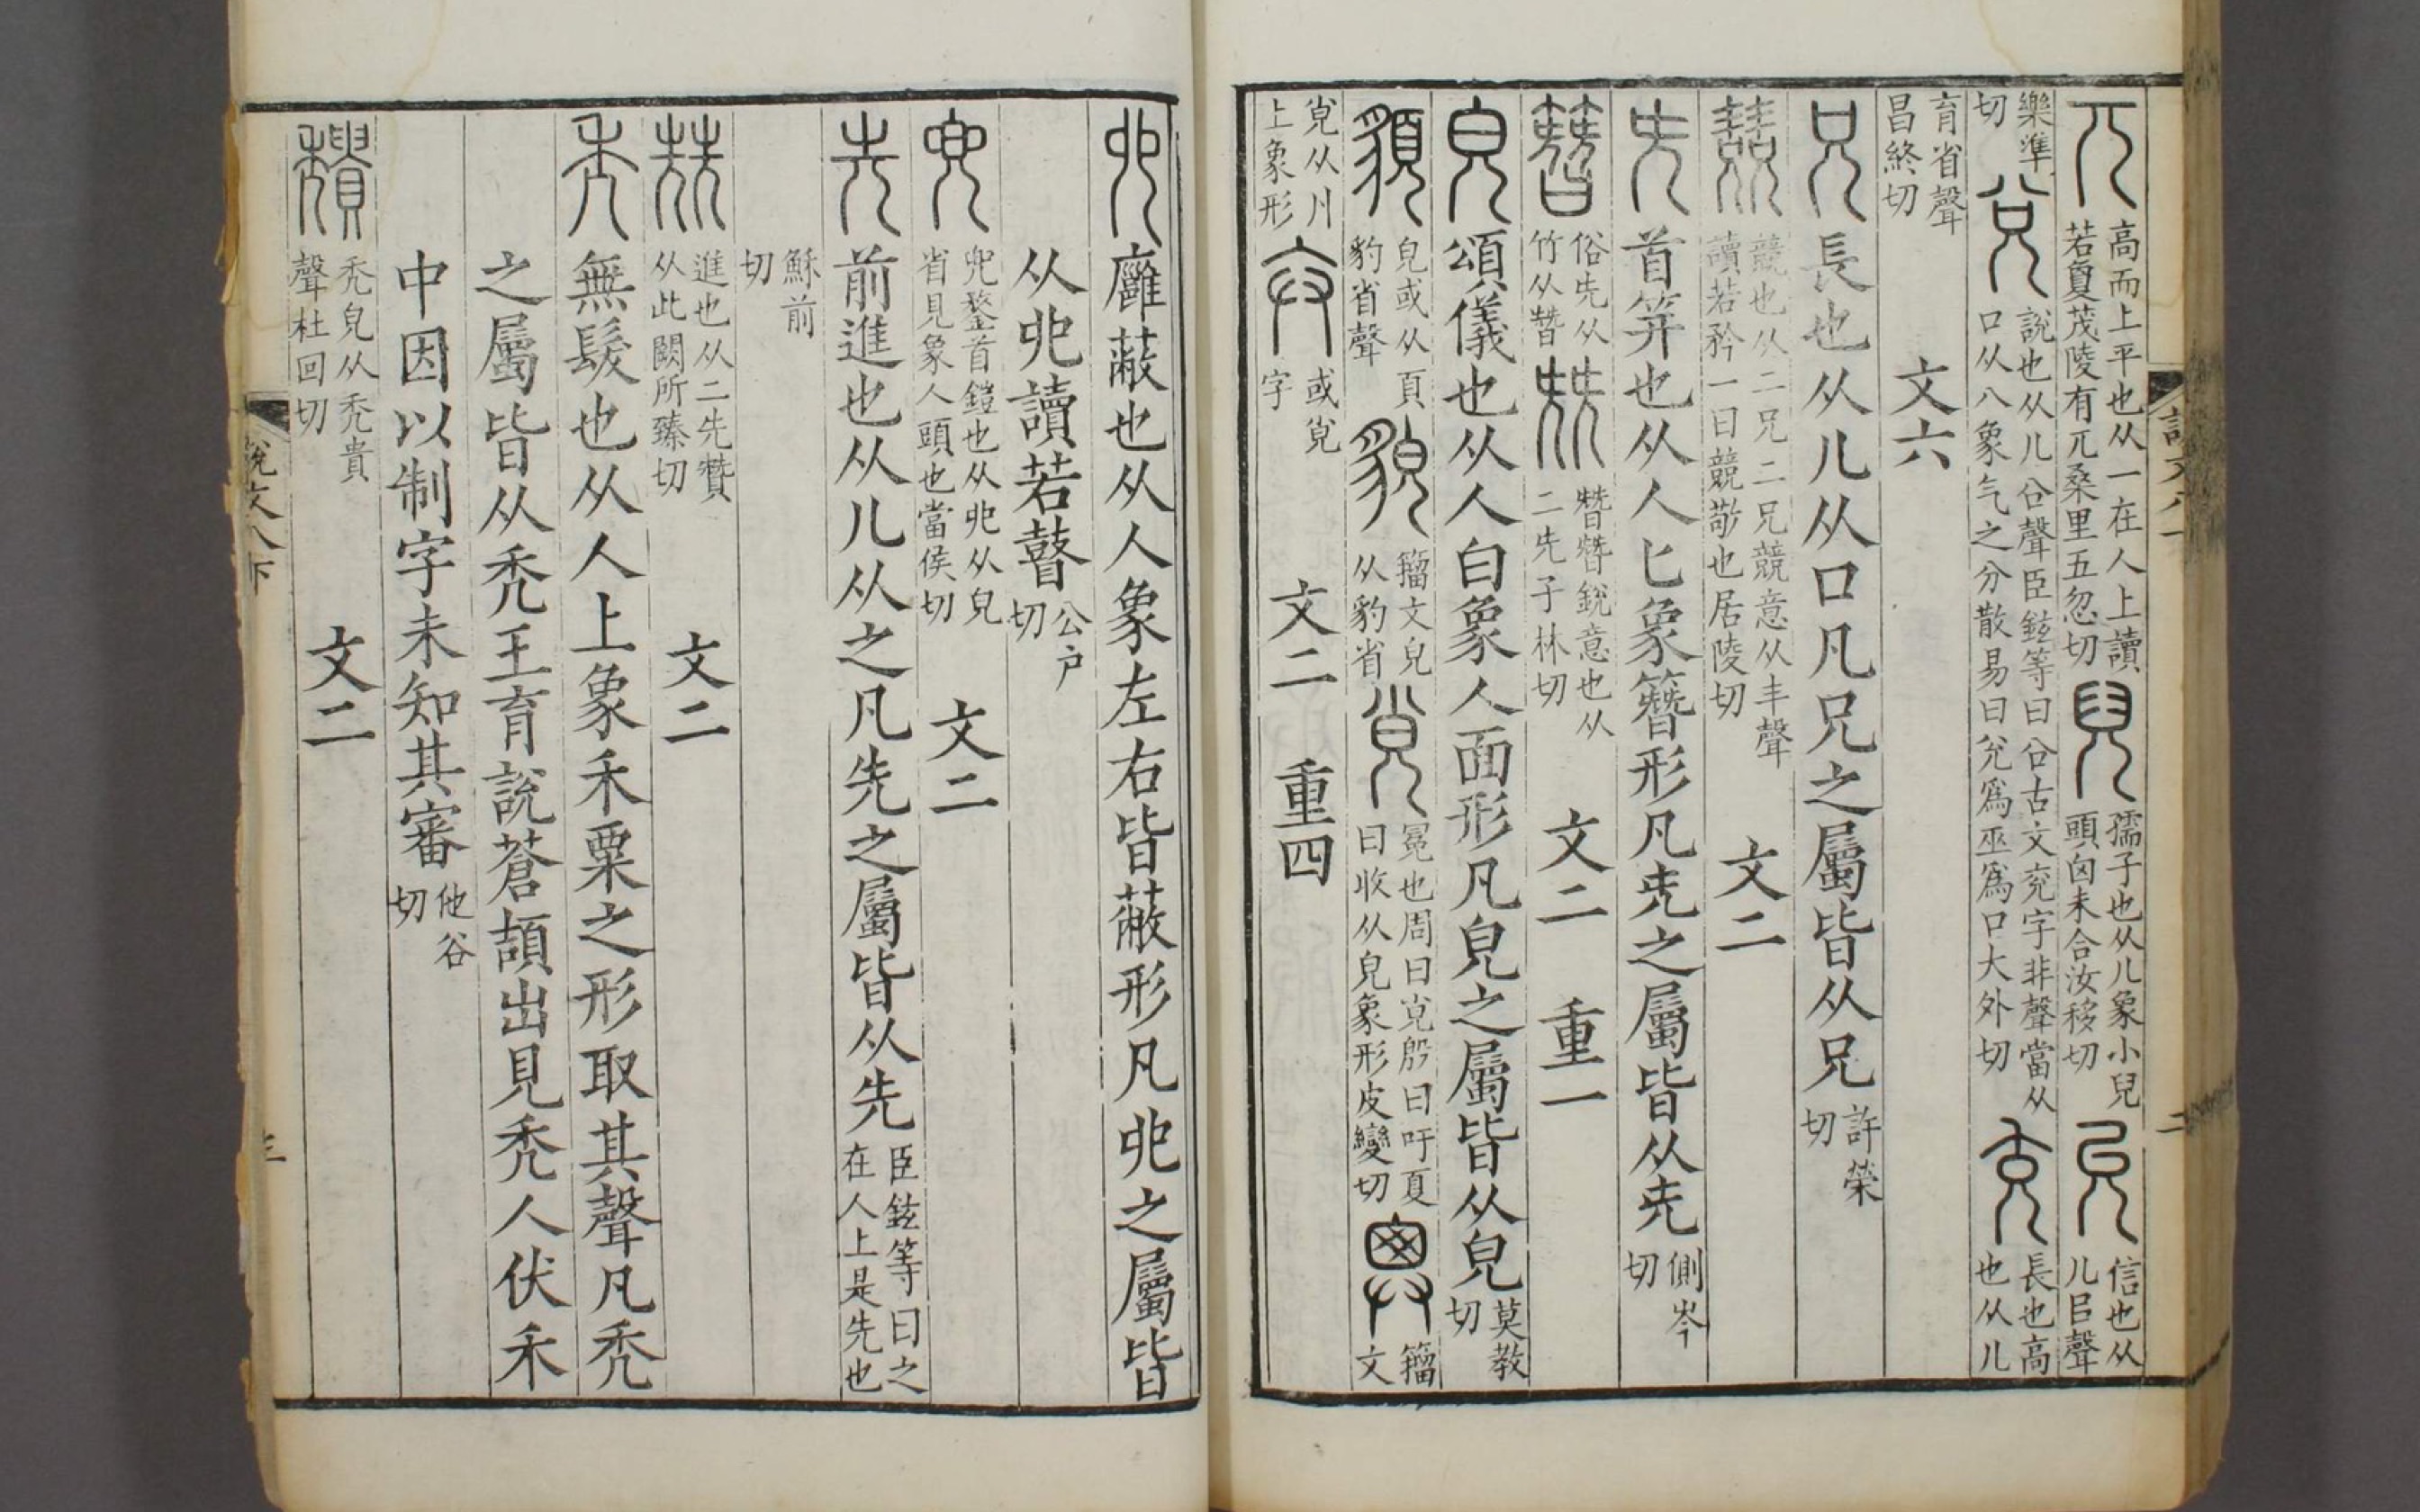 兀高而上平也从一在人上讀若敻茂陵有兀桑里五忽切兒孺子也从儿象小兒頭囟未合汝移切允信也从儿㠯聲
樂準切兌說也从儿㕣聲臣鉉等曰㕣古文兖字非聲當从口从八象气之分散易曰兌爲巫爲口大外切充長也高也从儿
育省聲昌終切 文六
兄長也从儿从口凡兄之屬皆从兄許榮切
兢競也从二兄二兄競意从丰聲讀若矜一曰兢敬也居陵切 文二
兂首笄也从人匕象簪形凡兂之屬皆从兂側岑切
簪俗兂从竹从朁兓朁朁銳意也从二兂子林切 文二 重一
皃頌儀也从人白象人面形凡皃之屬皆从皃莫教切
䫉皃或从頁豹省聲貌籒文皃从豹省覍冕也周曰覍殷曰吁夏曰收从皃象形皮變切籒文
覍从廾上象形弁或覍字 文二 重四
說文八下
二
𠑹廱蔽也从人象左右皆蔽形凡𠑹之屬皆
从𠑹讀若瞽公戶切
兜兜鍪首鎧也从𠑹从皃省皃象人頭也當侯切 文二
先前進也从儿从之凡先之屬皆从先臣鉉等曰之在人上是先也
穌前切
兟進也从二先贊从此闕所臻切 文二
秃無髮也从人上象禾粟之形取其聲凡秃
之屬皆从秃王育說蒼頡出見秃人伏禾
中因以制字未知其審他谷切
穨秃皃从秃貴聲杜回切 文二
說文八下
三